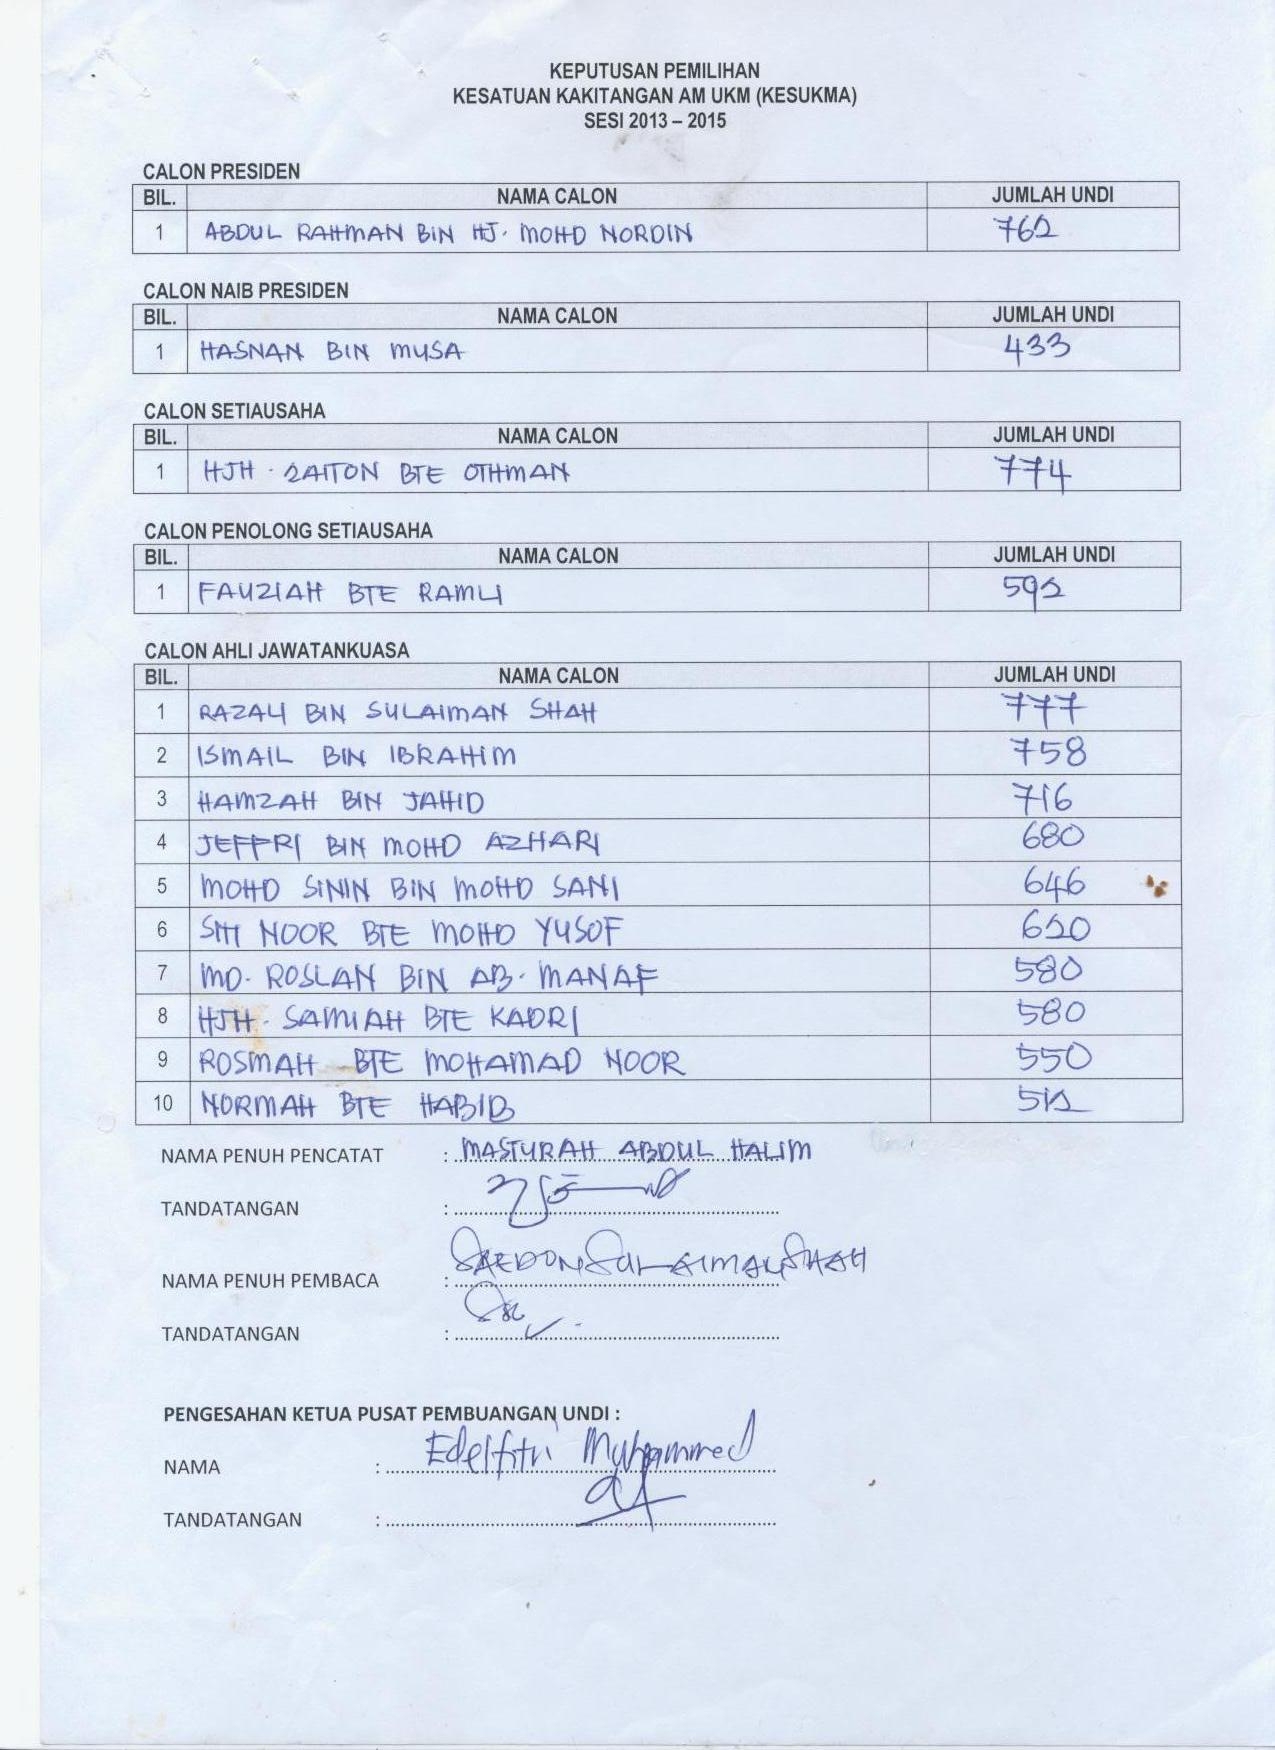 KEPUTUSAN PEMILIHAN
KESATUAN KAKITANGAN AM UKM (KESUKMA)
SESI 2013 – 2015
CALON PRESIDEN
BIL. NAMA CALON JUMLAH UNDI
1 ABDUL RAHMAN BIN HJ. MOHD NORDIN 762
CALON NAIB PRESIDEN
BIL. NAMA CALON JUMLAH UNDI
1 HASNAN BIN MUSA 433
CALON SETIAUSAHA
BIL. NAMA CALON JUMLAH UNDI
1 HJH. ZAITON BTE OTHMAN 774
CALON PENOLONG SETIAUSAHA
BIL. NAMA CALON JUMLAH UNDI
1 FAUZIAH BTE RAMLI 592
CALON AHLI JAWATANKUASA
BIL. NAMA CALON JUMLAH UNDI
1 RAZALI BIN SULAIMAN SHAH 777
2 ISMAIL BIN IBRAHIM 758
3 HAMZAH BIN JAHID 716
4 JEFFRI BIN MOHD AZHARI 680
5 MOHD SININ BIN MOHD SANI 646
6 SITI NOOR BTE MOHD YUSOF 620
7 MD. ROSLAN BIN AB. MANAF 580
8 HJH. SAMIAH BTE KADRI 580
9 ROSMAH BTE MOHAMAD NOOR 550
10 NORMAH BTE HABIB 512
NAMA PENUH PENCATAT : MASTURAH ABDUL HALIM
TANDATANGAN :
NAMA PENUH PEMBACA : SAEDON SULAIMAN SHAH
TANDATANGAN :
PENGESAHAN KETUA PUSAT PEMBUANGAN UNDI :
NAMA : Edelfitri Muhammed
TANDATANGAN :